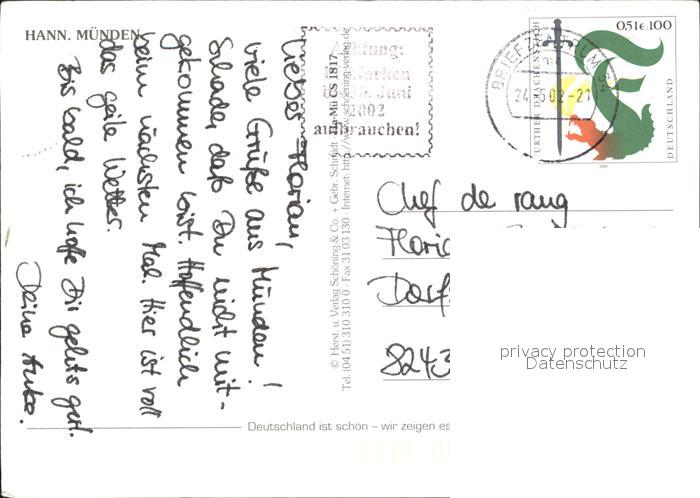 HANN. MÜNDEN
Lieber Florian,
viele Grüße aus Münden!
Schade, daß Du nicht mit-
gekommen bist. Hoffendlich
beim nächsten Mal. Hier ist voll
das geile Wetter.
Bis bald, ich hoffe Dir geht's gut.
Deine Anke.
© Herst. u. Verlag Schöning & Co. + Gebr. Schmidt Mü CS 1817
Tel. (04 51) 310 310 0 · Fax 31 03 130 · Internet: http://www.schoening-verlag.de
Achtung:
Marken
30. Juni
2002
aufbrauchen!
BRIEFZENTRUM 34
24. 02-21
0,51€ 100
FURTHER DRACHENSTICH
DEUTSCHLAND
2001
Chef de rang
Flori
Dorf
8243
privacy protection
Datenschutz
Deutschland ist schön – wir zeigen es